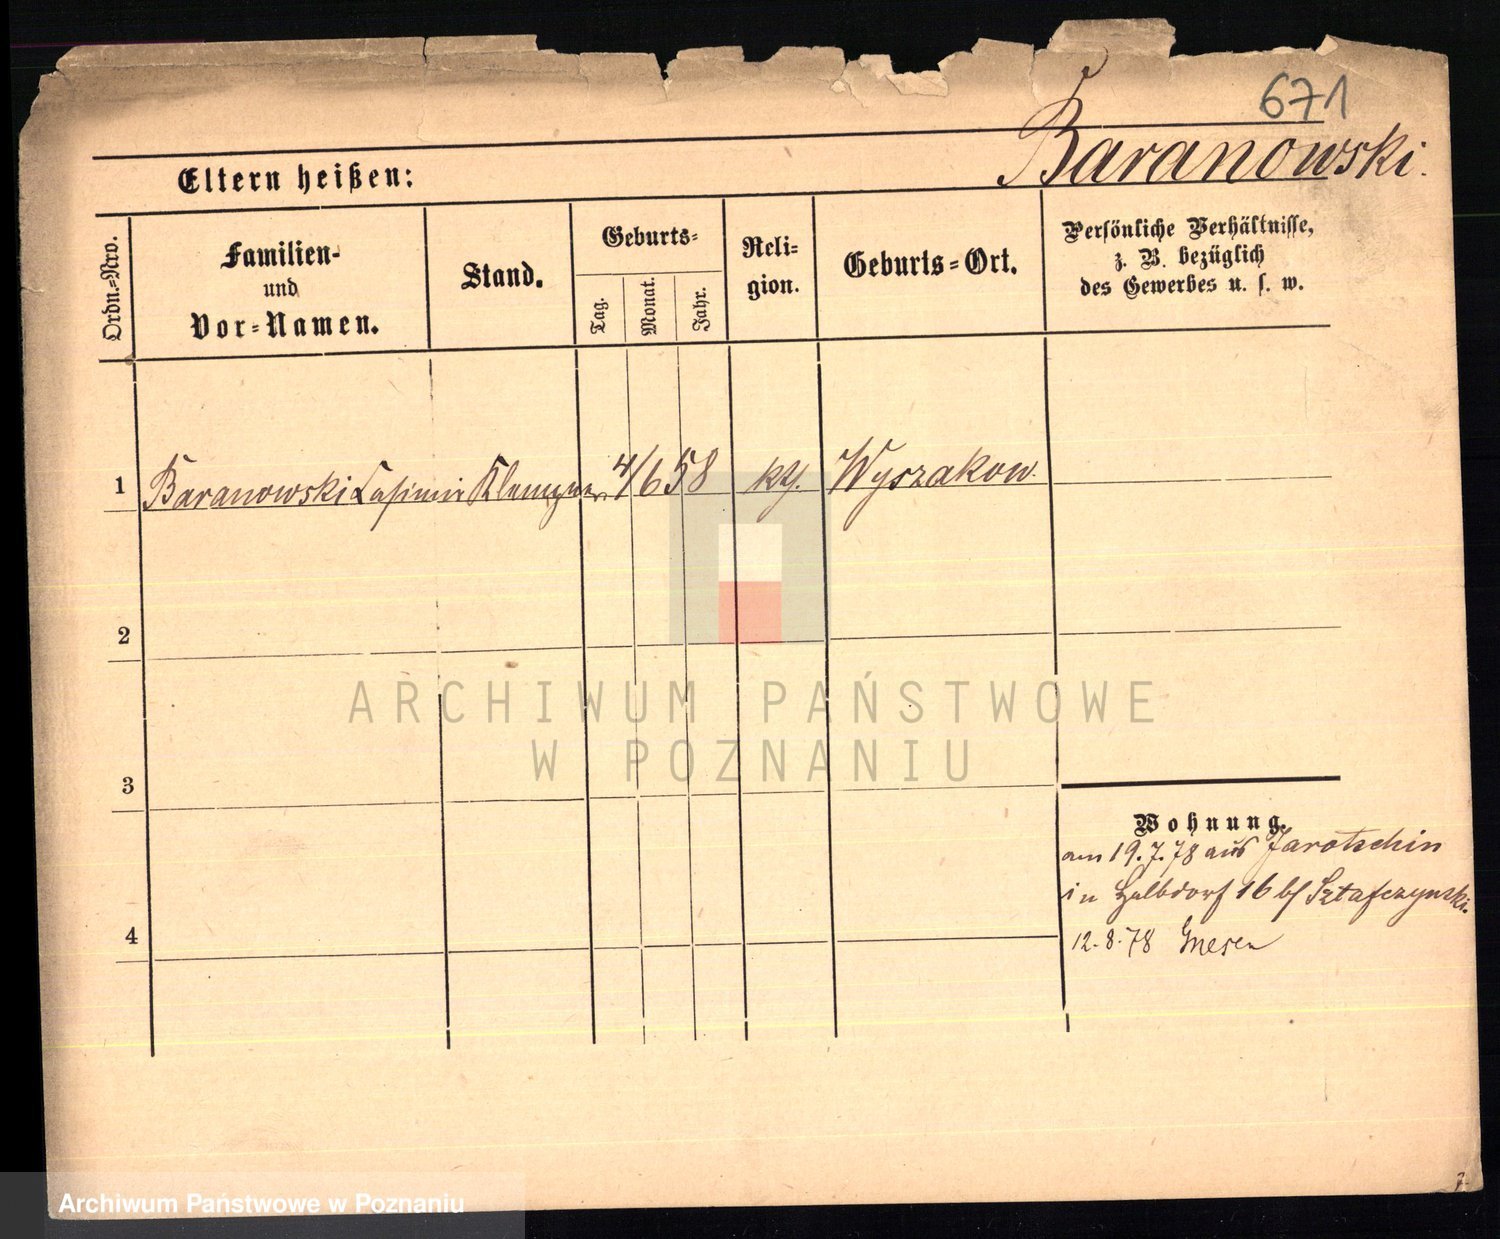 671
Baranowski.
Eltern heißen:
Ordn.-Nro.
Familien-
und
Vor-Namen.
Stand.
Geburts-
Tag.
Monat.
Jahr.
Reli-
gion.
Geburts-Ort.
Persönliche Verhältnisse,
z. B. bezüglich
des Gewerbes u. s. w.
1 Baranowski Casimir Klempner 4/6 58 kth. Wyszakow.
2
3
4
Wohnung.
am 19.7.78 aus Jarotschin
in Halbdorf 16 b/
12.8.78 Gnesen
ARCHIWUM PAŃSTWOWE
W POZNANIU
Archiwum Państwowe w Poznaniu